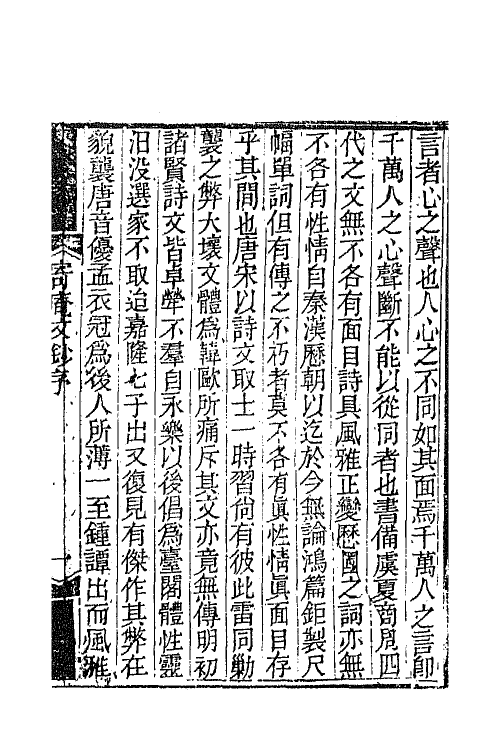 言者心之聲也人心之不同如其面焉千萬人之言卽
千萬人之心聲斷不能以從同者也書備虞夏商周四
代之文無不各有面目詩具風雅正變歷國之詞亦無
不各有性情自秦漢歷朝以迄於今無論鴻篇鉅製尺
幅單詞但有傳之不朽者莫不各有眞性情眞面目存
乎其間也唐宋以詩文取士一時習尙有彼此雷同勦
襲之弊大壞文體爲韓歐所痛斥其文亦竟無傳明初
諸賢詩文皆卓犖不羣自永樂以後倡爲臺閣體性靈
汨没選家不取迨嘉隆七子出又復見有傑作其弊在
貌襲唐音優孟衣冠爲後人所薄一至鍾譚出而風雅
寄庵文鈔序
一